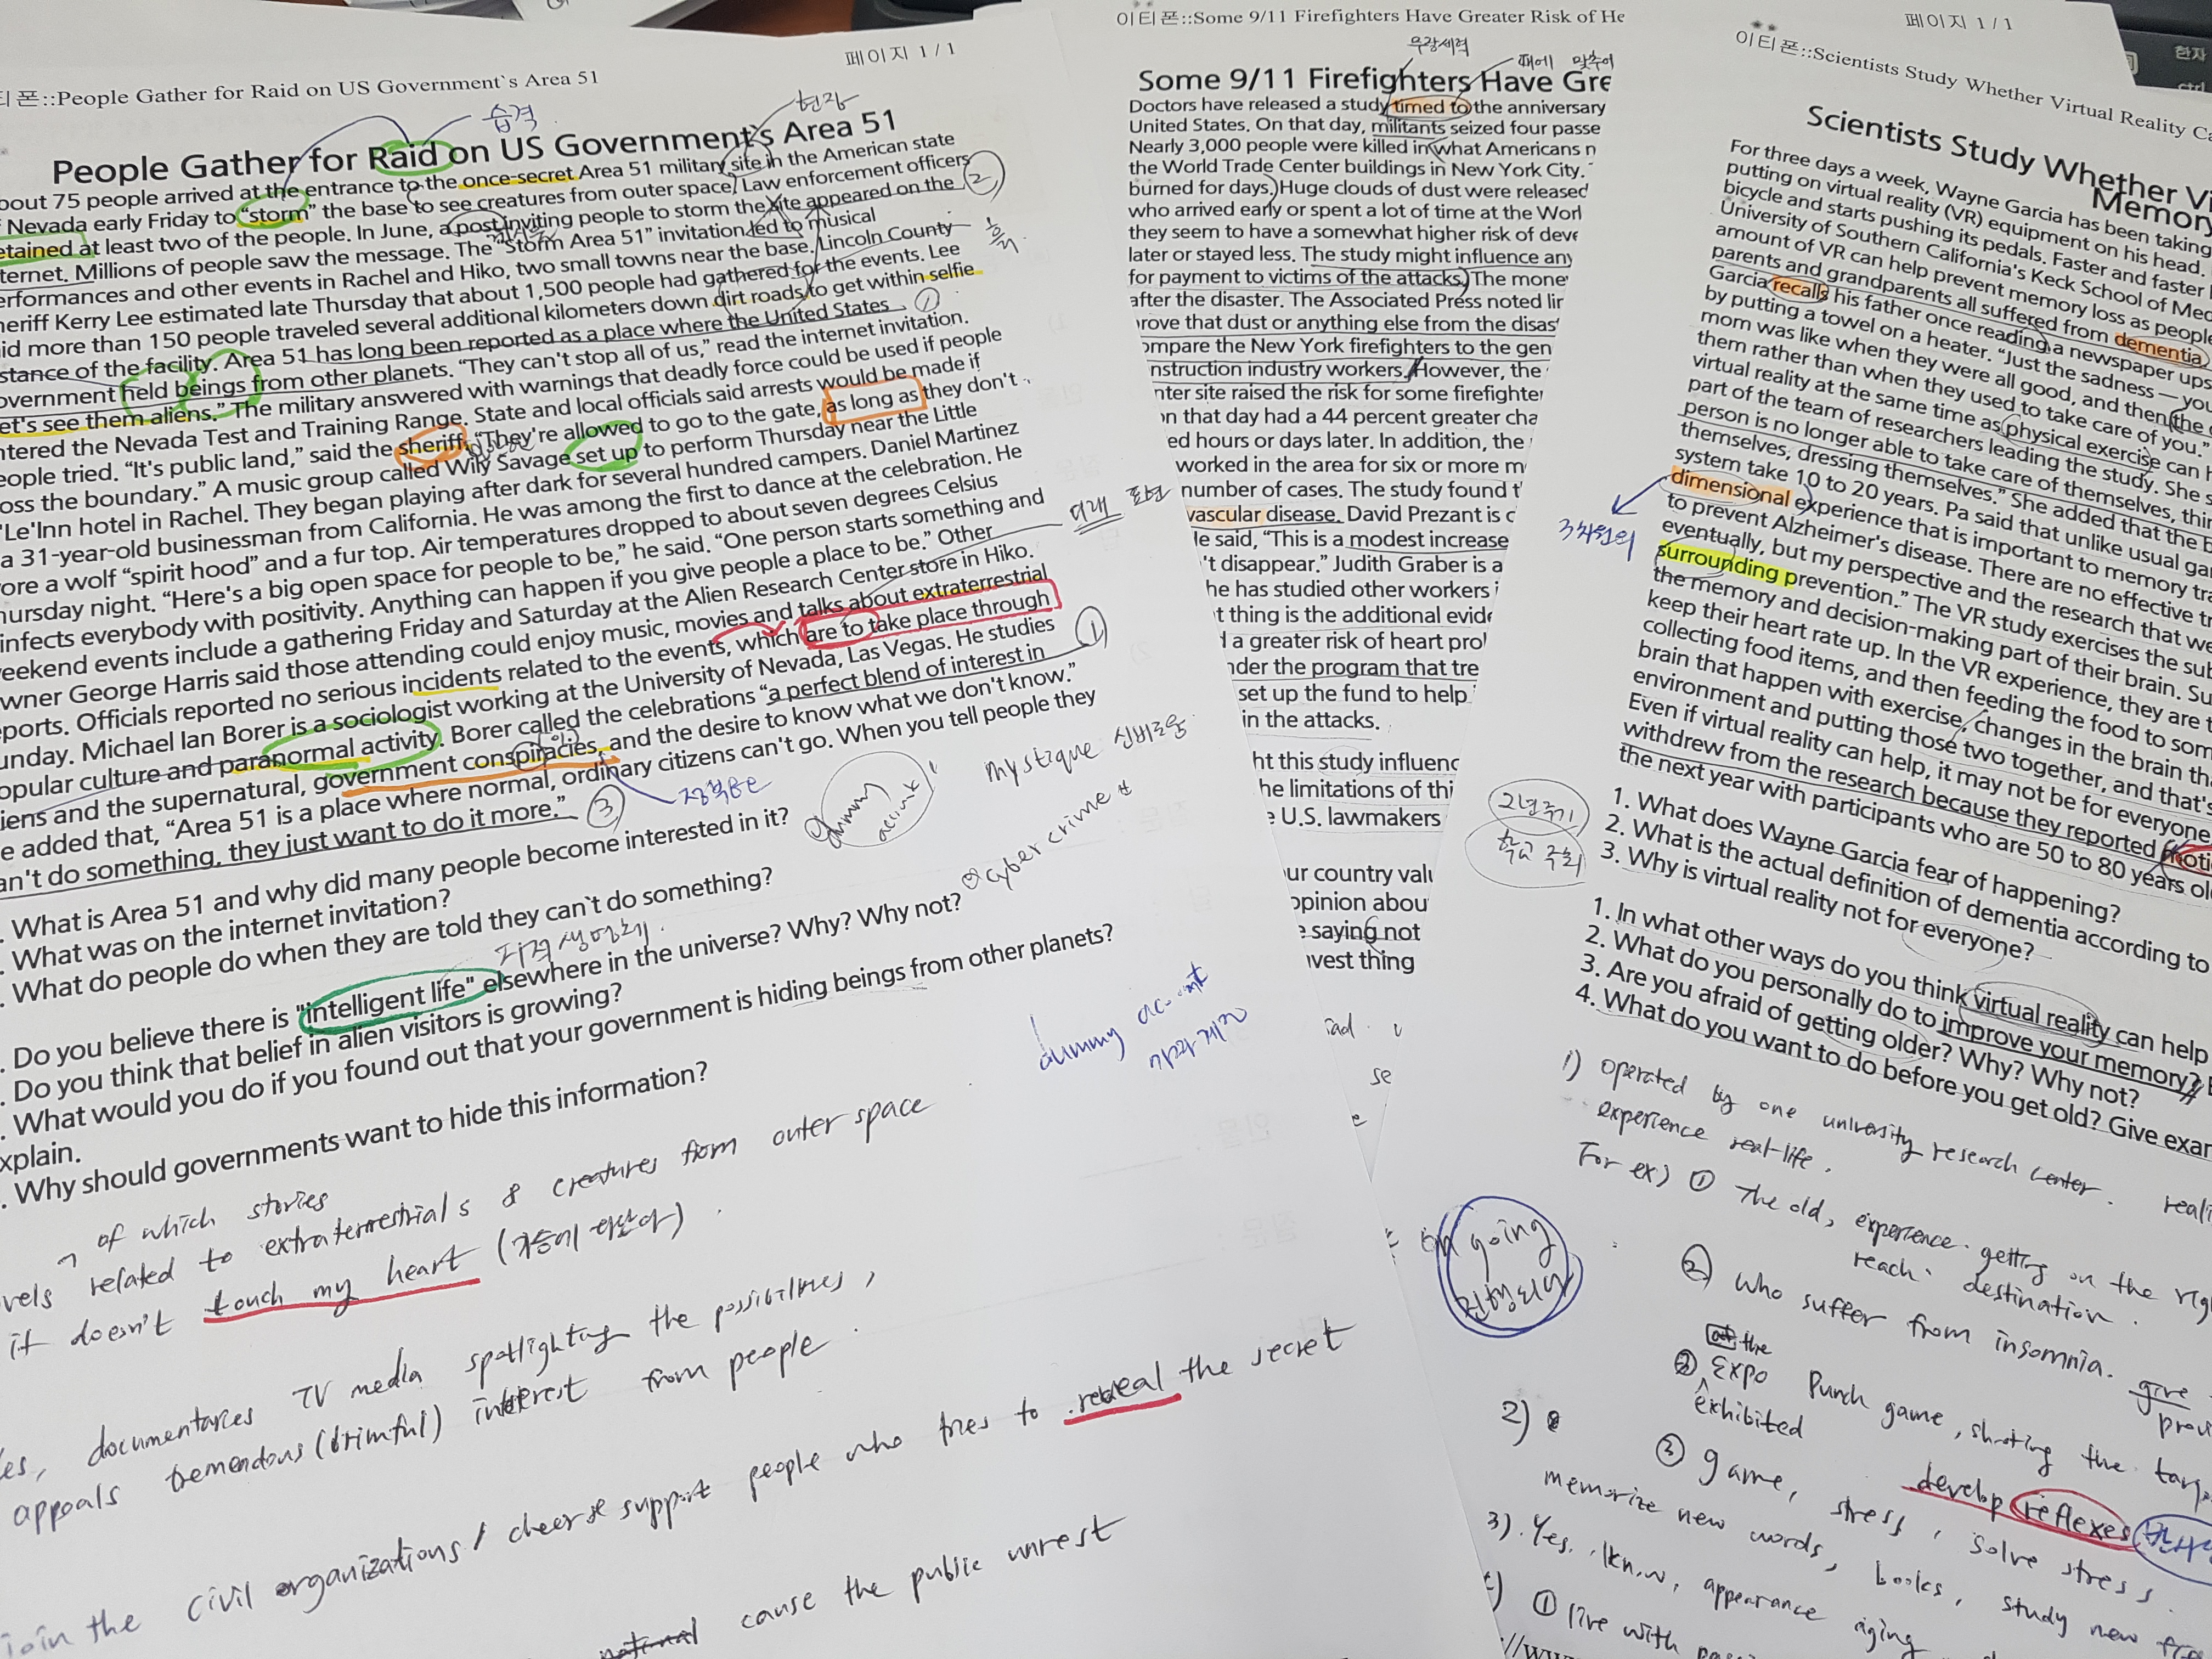 페이지 1 / 1
티폰::People Gather for Raid on US Government`s Area 51
습격
현장
People Gather for Raid on US Government`s Area 51
bout 75 people arrived at the entrance to the once-secret Area 51 military site in the American state
Nevada early Friday to “storm” the base to see creatures from outer space. Law enforcement officers
etained at least two of the people. In June, a post inviting people to storm the site appeared on the
②
ternet. Millions of people saw the message. The “Storm Area 51” invitation led to musical
erformances and other events in Rachel and Hiko, two small towns near the base. Lincoln County
흙길
heriff Kerry Lee estimated late Thursday that about 1,500 people had gathered for the events. Lee
id more than 150 people traveled several additional kilometers down dirt roads to get within selfie
stance of the facility. Area 51 has long been reported as a place where the United States
①
overnment held beings from other planets. “They can't stop all of us,” read the internet invitation.
et's see them aliens.” The military answered with warnings that deadly force could be used if people
ntered the Nevada Test and Training Range. State and local officials said arrests would be made if
eople tried. “It's public land,” said the sheriff. “They're allowed to go to the gate, as long as they don't
oss the boundary.” A music group called Wily Savage set up to perform Thursday near the Little
'Le'Inn hotel in Rachel. They began playing after dark for several hundred campers. Daniel Martinez
a 31-year-old businessman from California. He was among the first to dance at the celebration. He
ore a wolf “spirit hood” and a fur top. Air temperatures dropped to about seven degrees Celsius
hursday night. “Here's a big open space for people to be,” he said. “One person starts something and
infects everybody with positivity. Anything can happen if you give people a place to be.” Other
미래 표현
eekend events include a gathering Friday and Saturday at the Alien Research Center store in Hiko.
wner George Harris said those attending could enjoy music, movies and talks about extraterrestrial
ports. Officials reported no serious incidents related to the events, which are to take place through
unday. Michael Ian Borer is a sociologist working at the University of Nevada, Las Vegas. He studies
①
opular culture and paranormal activity. Borer called the celebrations “a perfect blend of interest in
iens and the supernatural, government conspiracies, and the desire to know what we don't know.”
e added that, “Area 51 is a place where normal, ordinary citizens can't go. When you tell people they
an't do something, they just want to do it more.”
③
mystique 신비로움
. What is Area 51 and why did many people become interested in it?
. What was on the internet invitation?
. What do people do when they are told they can`t do something?
cyber crime
지적 생명체
. Do you believe there is "intelligent life" elsewhere in the universe? Why? Why not?
. Do you think that belief in alien visitors is growing?
. What would you do if you found out that your government is hiding beings from other planets?
xplain.
. Why should governments want to hide this information?
dummy account
가짜 계정
of which stories
vels related to extraterrestrials & creatures from outer space
it doesn't touch my heart
TV media spotlighting the possibilities,
es, documentaries
appeals tremendous (brimful) interest from people.
join the civil organizations / cheer & support people who tries to reveal the secret
cause the public unrest
이티폰::Some 9/11 Firefighters Have Greater Risk of He
무장세력
때에 맞추어
Some 9/11 Firefighters Have Gre
Doctors have released a study timed to the anniversary
United States. On that day, militants seized four passe
Nearly 3,000 people were killed in what Americans n
the World Trade Center buildings in New York City.
burned for days. Huge clouds of dust were released
who arrived early or spent a lot of time at the Worl
they seem to have a somewhat higher risk of deve
later or stayed less. The study might influence any
for payment to victims of the attacks. The mone
after the disaster. The Associated Press noted lir
rove that dust or anything else from the disas
ompare the New York firefighters to the gen
nstruction industry workers. However, the
nter site raised the risk for some firefighter
on that day had a 44 percent greater cha
ed hours or days later. In addition, the
worked in the area for six or more m
number of cases. The study found t
vascular disease. David Prezant is c
le said, “This is a modest increase
't disappear.” Judith Graber is a
he has studied other workers i
t thing is the additional evide
d a greater risk of heart prol
nder the program that tre
set up the fund to help
in the attacks.
ht this study influenc
he limitations of thi
e U.S. lawmakers
ur country valu
opinion abou
e saying not
nvest thing
페이지 1 / 1
이티폰::Scientists Study Whether Virtual Reality Ca
Scientists Study Whether Vi
Memory
For three days a week, Wayne Garcia has been taking
putting on virtual reality (VR) equipment on his head.
bicycle and starts pushing its pedals. Faster and faster
University of Southern California's Keck School of Med
amount of VR can help prevent memory loss as people
parents and grandparents all suffered from dementia
Garcia recalls his father once reading a newspaper ups
by putting a towel on a heater. “Just the sadness — you
mom was like when they were all good, and then the
them rather than when they used to take care of you.”
virtual reality at the same time as physical exercise can h
part of the team of researchers leading the study. She s
person is no longer able to take care of themselves, thin
themselves, dressing themselves.” She added that the b
system take 10 to 20 years. Pa said that unlike usual ga
dimensional experience that is important to memory tra
3차원의
to prevent Alzheimer's disease. There are no effective tr
eventually, but my perspective and the research that we
surrounding prevention.” The VR study exercises the sub
the memory and decision-making part of their brain. Su
keep their heart rate up. In the VR experience, they are t
collecting food items, and then feeding the food to som
brain that happen with exercise, changes in the brain tha
environment and putting those two together, and that's
Even if virtual reality can help, it may not be for everyone
withdrew from the research because they reported moti
the next year with participants who are 50 to 80 years old
1. What does Wayne Garcia fear of happening?
2. What is the actual definition of dementia according to
3. Why is virtual reality not for everyone?
1. In what other ways do you think virtual reality can help
2. What do you personally do to improve your memory?
3. Are you afraid of getting older? Why? Why not?
4. What do you want to do before you get old? Give exar
1) operated by one university research center.
experience real-life.
For ex) ① The old, experience. getting on the
reach. destination.
② who suffer from insomnia. give
at the
Expo Punch game, shooting the targ
exhibited
2)
③ game, stress, solve stress.
develop reflexes
memorize new words, books, study new
3). Yes. I know, appearance aging
① live with
on going
진행되어
한자